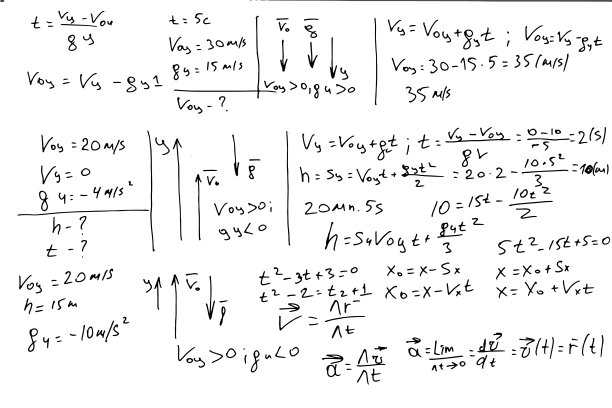 t = (Vy - Voy) / gy
Voy = Vy - gy1
t = 5c
Voy = 30 m/s
gy = 15 m/s
Voy - ?
V̄o ḡ
y
Voy > 0, gy > 0
Vy = Voy + gyt ; Voy = Vy - gyt
Voy = 30 - 15 · 5 = 35 (m/s)
35 m/s
Voy = 20 m/s
Vy = 0
gy = -4 m/s²
h - ?
t - ?
y
V̄o ḡ
Voy > 0;
gy < 0
Vy = Voy + gt ; t = (Vy - Voy) / gV = (0 - 10) / -5 = 2 (s)
h = Sy = Voyt + gyt² / 2 = 20 · 2 - 10 · 5² / 3 = 10 (m)
20 мn. 5s
10 = 15t - 10t² / 2
h = SyVoyt + gyt² / 3
5t² - 15t + 5 = 0
Voy = 20 m/s
h = 15 m
gy = -10 m/s²
y
V̄o ḡ
Voy > 0 ; gy < 0
t² - 3t + 3 = 0
t² - 2 = t2 + 1
Xo = X - Sx
X = Xo + Sx
Xo = X - Vxt
X = Xo + Vxt
V⃗ = Λr⁻ / Λt
a⃗ = Λv⃗ / Λt
a⃗ = Lim Λt→0 = dv⃗ / dt = v⃗(t) = r̄(t)